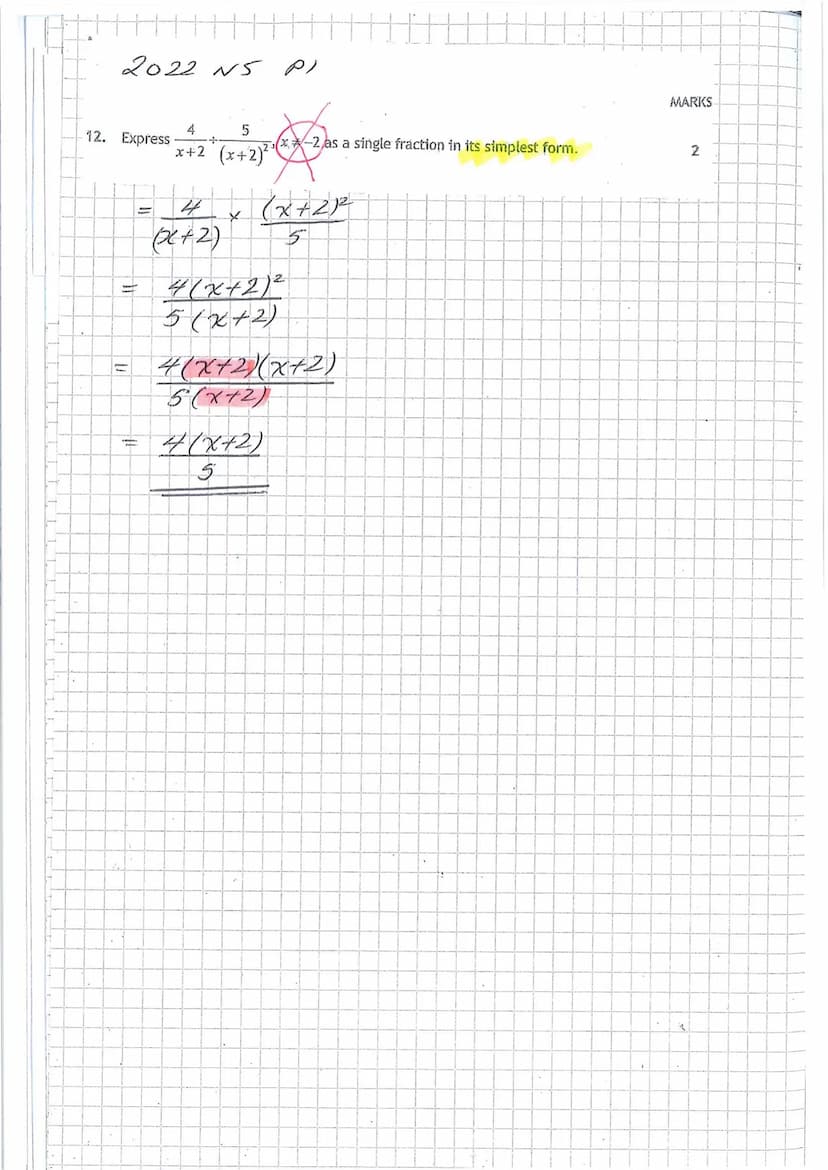 2022 N5 P1
MARKS
12. Express 4/(x+2) ÷ 5/(x+2)², x ≠ −2, as a single fraction in its simplest form. 2
= 4/(x+2) × (x+2)²/5
= 4(x+2)²/5(x+2)
= 4(x+2)(x+2)/5(x+2)
= 4(x+2)/5